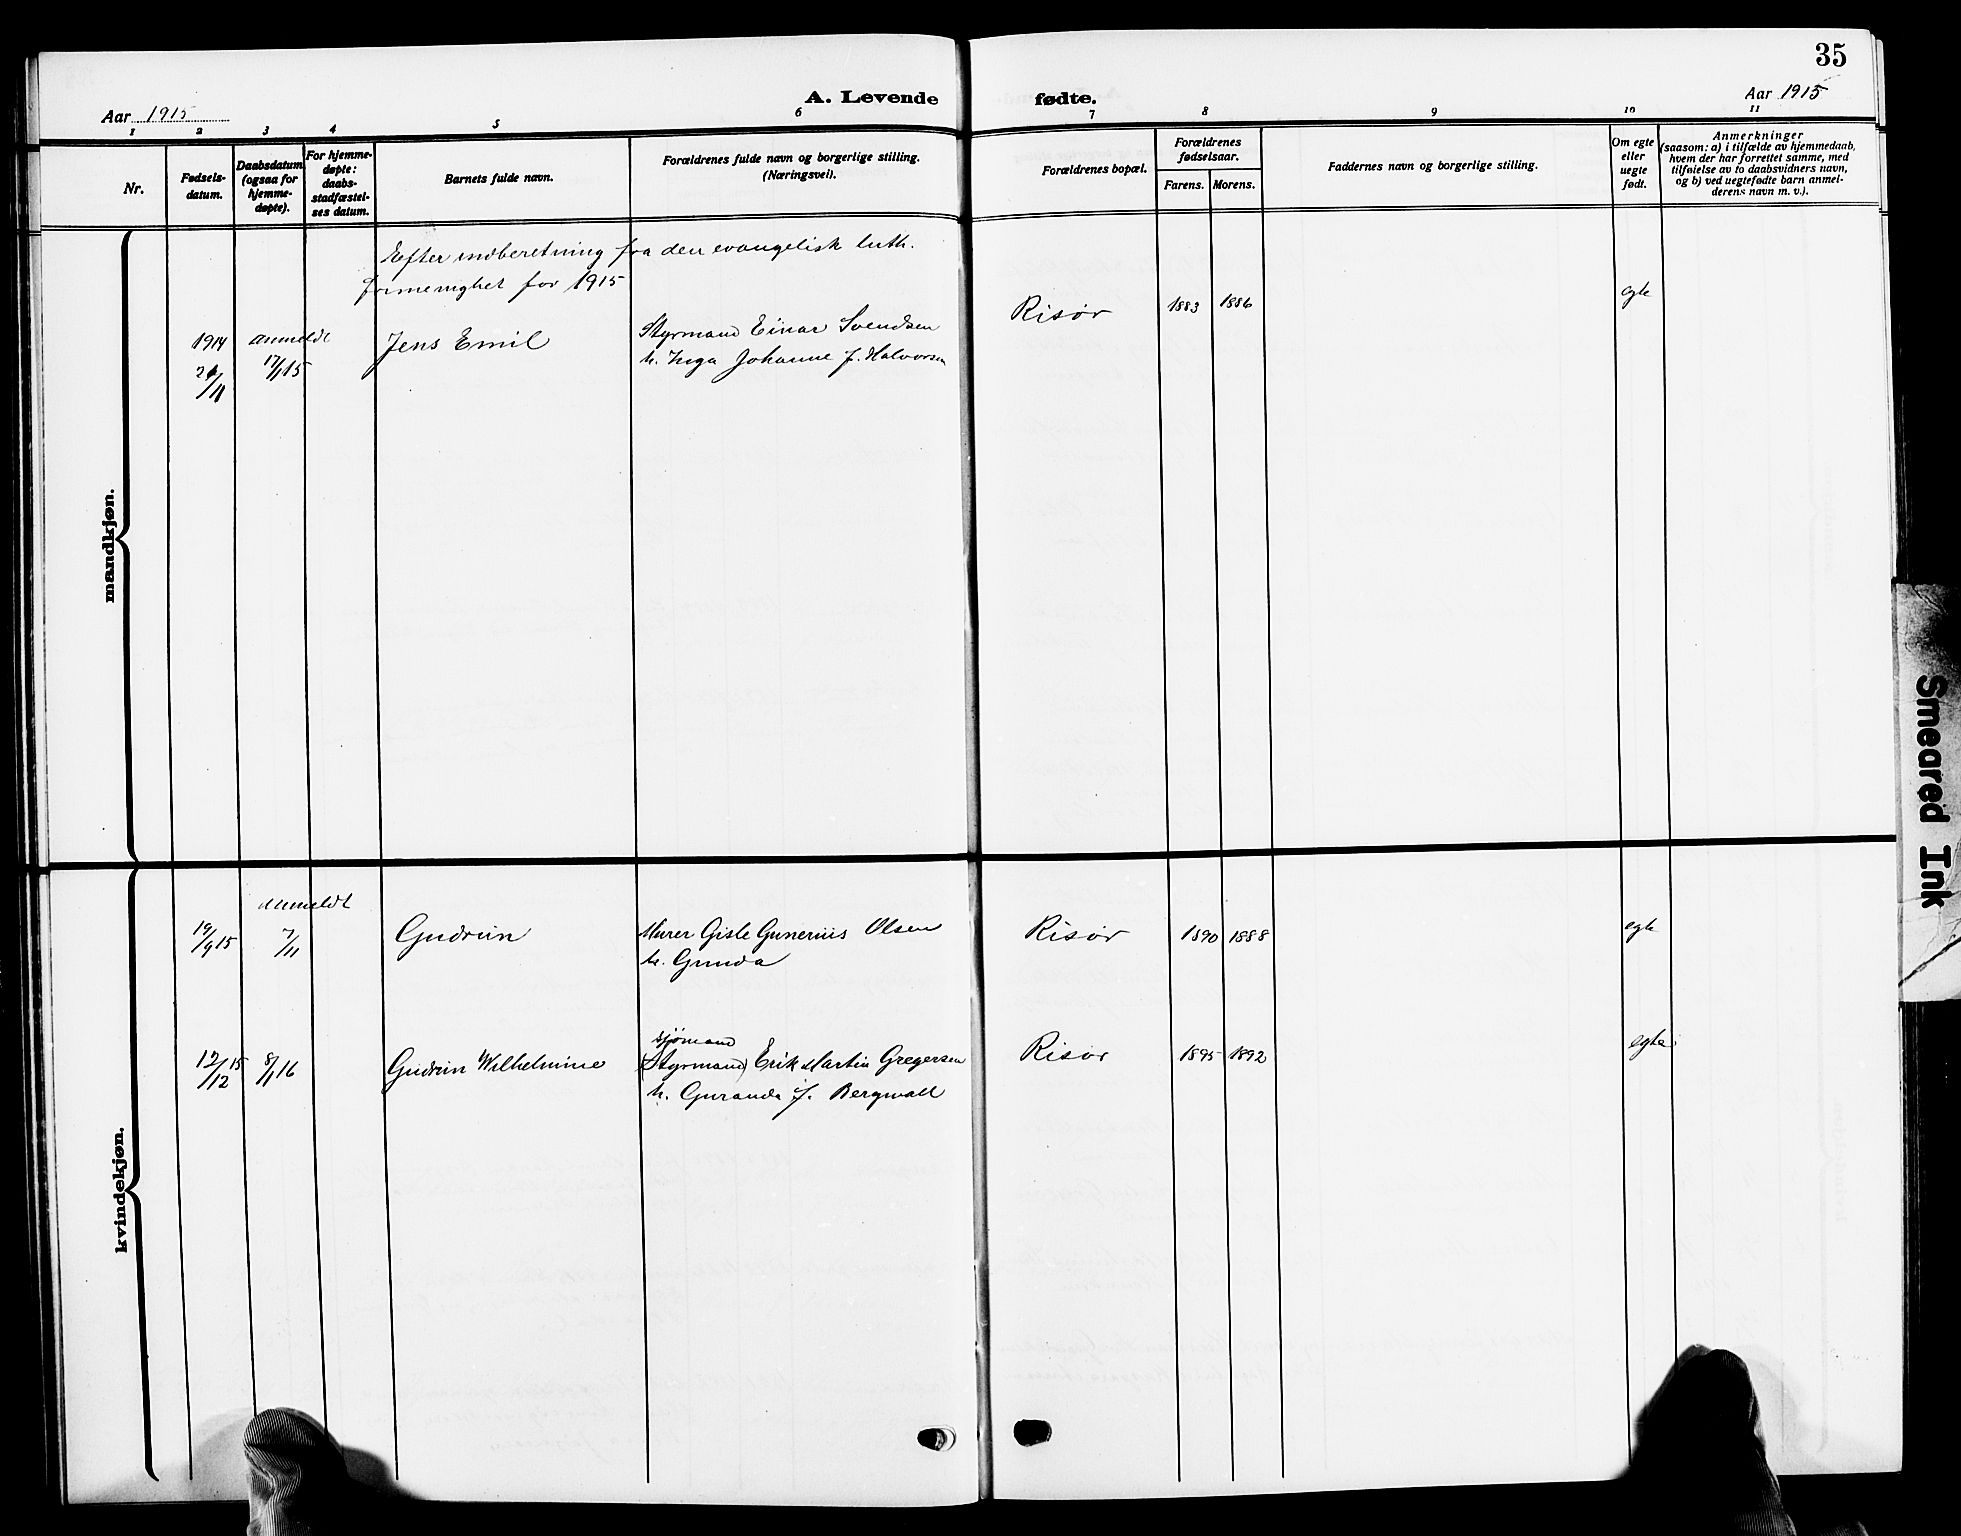 35
Aar 1915
A. Levende
fødte.
Aar 1915
1
2
3
4
5
6
7
8
9
10
11
Nr.
Fødsels-
datum.
Daabsdatum
(ogsaa for
hjemme-
døpte).
For hjemme-
døpte:
daabs-
stadfæstel-
ses datum.
Barnets fulde navn.
Forældrenes fulde navn og borgerlige stilling.
(Næringsvei).
Forældrenes bopæl.
Forældrenes
fødselsaar.
Farens.
Morens.
Faddernes navn og borgerlige stilling.
Om egte
eller
uegte
født.
Anmerkninger
(saasom: a) i tilfælde av hjemmedaab,
hvem der har forrettet samme, med
tilføielse av to daabsvidners navn,
og b) ved uegtefødte barn anmel-
derens navn m. v.).
mandkjøn.
Efter indberetning fra den evangelisk luth.
frimenighet for 1915
1914
anmeldt
17/1 15
Jens Emil
Styrmand Einar Svendsen
h. Inga Johanne f. Halvorsen
Risør
1883
1886
egte
kvindekjøn.
anmeldt
19/9 15
7/11
Gudrun
Murer Gisle Gunerius Olsen
h. Gunda
Risør
1890
1888
egte
12/12 15
8/1 16
Gudrun Wilhelmine
sjømand
(Styrmand) Erik Martin Gregersen
h. Guranda f. Bergwall
Risør
1895
1892
egte
Smeared Ink